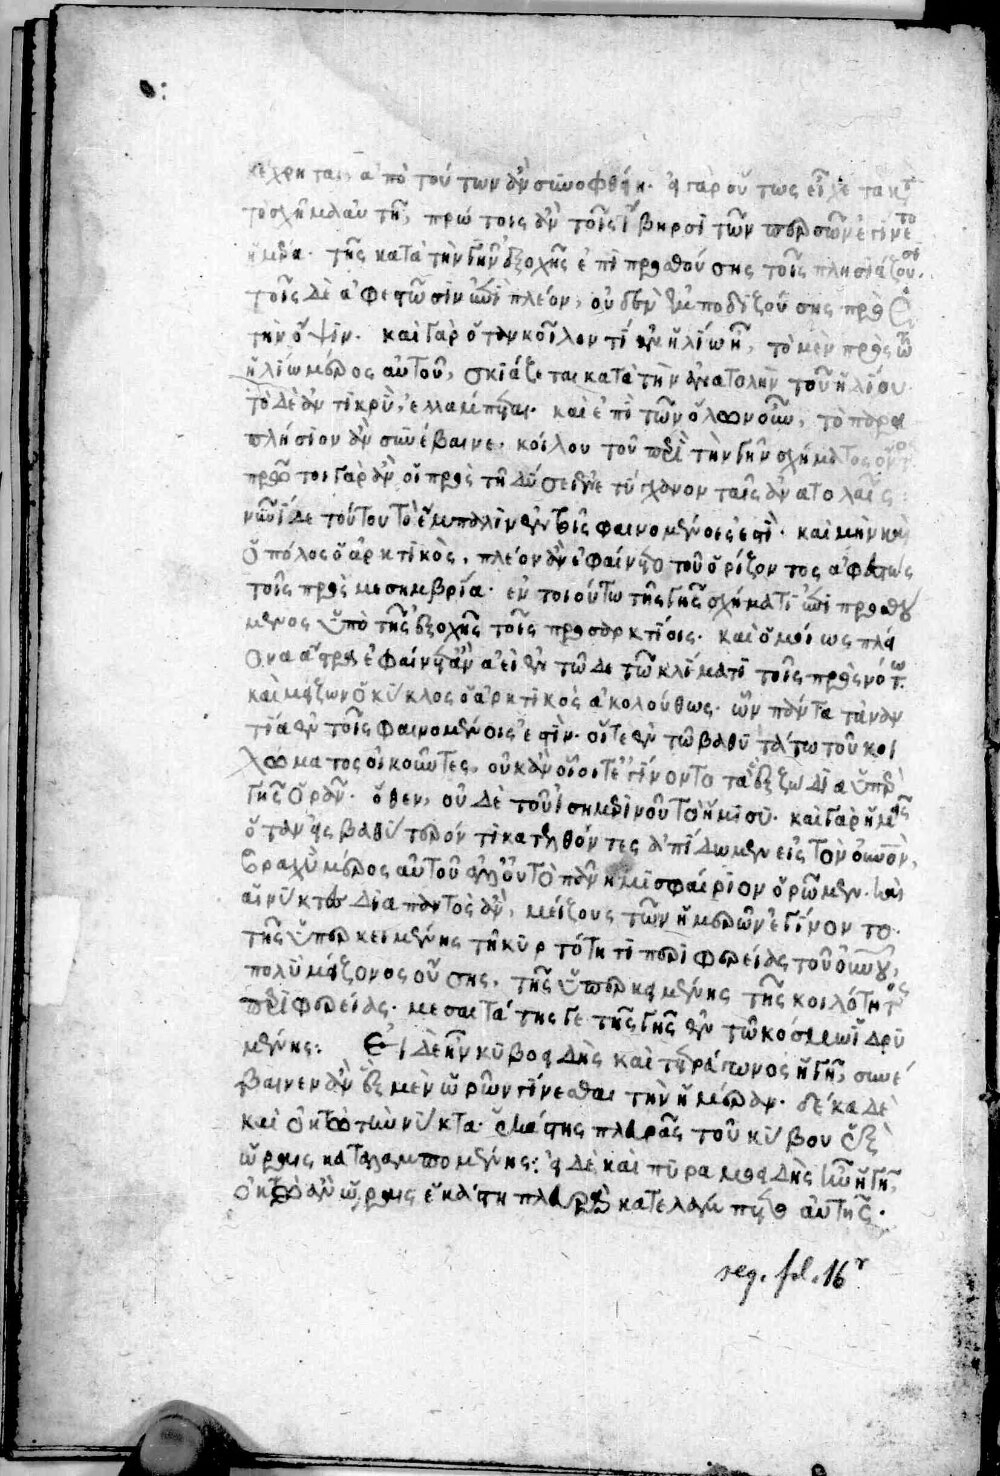 κέχρηται, ἀπὸ τούτων ἂν συνοφθείη. εἰ γὰρ οὕτως εἶχε τὰ κατὰ
τὸ σχῆμα αὐτῆς, πρώτοις ἂν τοῖς Ἴβηρσι τῶν Περσῶν ἐγίνετο
ἡμέρα. τῆς κατὰ τὴν γῆν ἐξοχῆς ἐπιπροσθούσης τοῖς πλησιάζουσι.
τοῖς δὲ ἀφεστῶσιν ἐπὶ πλέον, οὐδὲν ἐμποδιζούσης πρὸς
τὴν ὄψιν. καὶ γὰρ ὅταν κοῖλόν τι ἐν ἡλίῳ ᾖ, τὸ μὲν πρὸς τῷ
ἡλίῳ μέρος αὐτοῦ, σκιάζεται κατὰ τὴν ἀνατολὴν τοῦ ἡλίου.
τὸ δὲ ἀντικρύ, ἐλλάμπεται. καὶ ἐπὶ τῶν ὅλων οὖν, τὸ παρα
πλήσιον ἂν συνέβαινε. κοίλου τοῦ περὶ τὴν γῆν σχήματος ὄντος
πρῶτοι γὰρ ἂν οἱ πρὸς τῇ δύσει ἐνετύγχανον ταῖς ἀνατολαῖς:
νυνὶ δὲ τούτου τὸ ἔμπαλιν ἐν τοῖς φαινομένοις ἐστί. καὶ μὴν καὶ
ὁ πόλος ὁ ἀρκτικὸς, πλέον ἂν ἐφαίνετο τοῦ ὁρίζοντος ἀφεστὼς
τοῖς πρὸς μεσημβρία. ἐν τοιούτῳ τῆς γῆς σχήματι ἐπιπροσθού
μενος ὑπὸ τῆς ἐξοχῆς τοῖς προσαρκτίοις. καὶ ὁμοίως πλεί
ονα ἄστρα ἐφαίνετ' ἂν ἀεὶ ἐν τῷδε τῷ κλίματι τοῖς πρὸς νότῳ.
καὶ μείζων ὁ κύκλος ὁ ἀρκτικὸς ἀκολούθως. ὧν πάντα τἀναν
τία ἐν τοῖς φαινομένοις ἐστίν. οὔτε ἐν τῷ βαθυτάτῳ τοῦ κοι
λώματος οἰκοῦντες, οὐκ ἂν οἷοί τε ἐγίνοντο τὰ ἓξ ζῴδια ὑπὲρ
γῆς ὁρᾶν. ὅθεν, οὐδὲ τοῦ ἰσημερινοῦ τὸ ἥμισυ. καὶ γὰρ ἡμεῖς
ὅταν εἰς βαθύτερόν τι κατελθόντες ἀπίδωμεν εἰς τὸν οὐρανὸν,
βραχὺ μέρος αὐτοῦ ἀλλ' οὐ τὸ πᾶν ἡμισφαίριον ὁρῶμεν. καὶ
αἱ νύκτες διαπαντὸς ἂν, μείζους τῶν ἡμερῶν ἐγίνοντο.
τῆς ὑπερκειμένης τῇ κυρτότητι περιφερείας τοῦ οὐρανοῦ,
πολὺ μείζονος οὔσης, τῆς ὑπερκειμένης τῆς κοιλότητος
περιφερείας. μεσαιτάτης γε τῆς γῆς ἐν τῷ κόσμῳ ἱδρυ
μένης: Εἰ δὲ ἦν κυβοειδὴς καὶ τετράγωνος ἡ γῆ, συνέ
βαινεν ἂν ἓξ μὲν ὡρῶν γίνεσθαι τὴν ἡμέραν. δέκα δὲ
καὶ ὀκτὼ τὴν νύκτα. ἑκάστης πλευρᾶς τοῦ κύβου ἓξ
ὥρας καταλαμπομένης: εἰ δὲ καὶ πυραμοειδὴς ἦν ἡ γῆ,
ὀκτὼ ἂν ὥραις ἑκάστη πλευρὰ κατελάμπετο αὐτῆς.
seq. fol. 16r